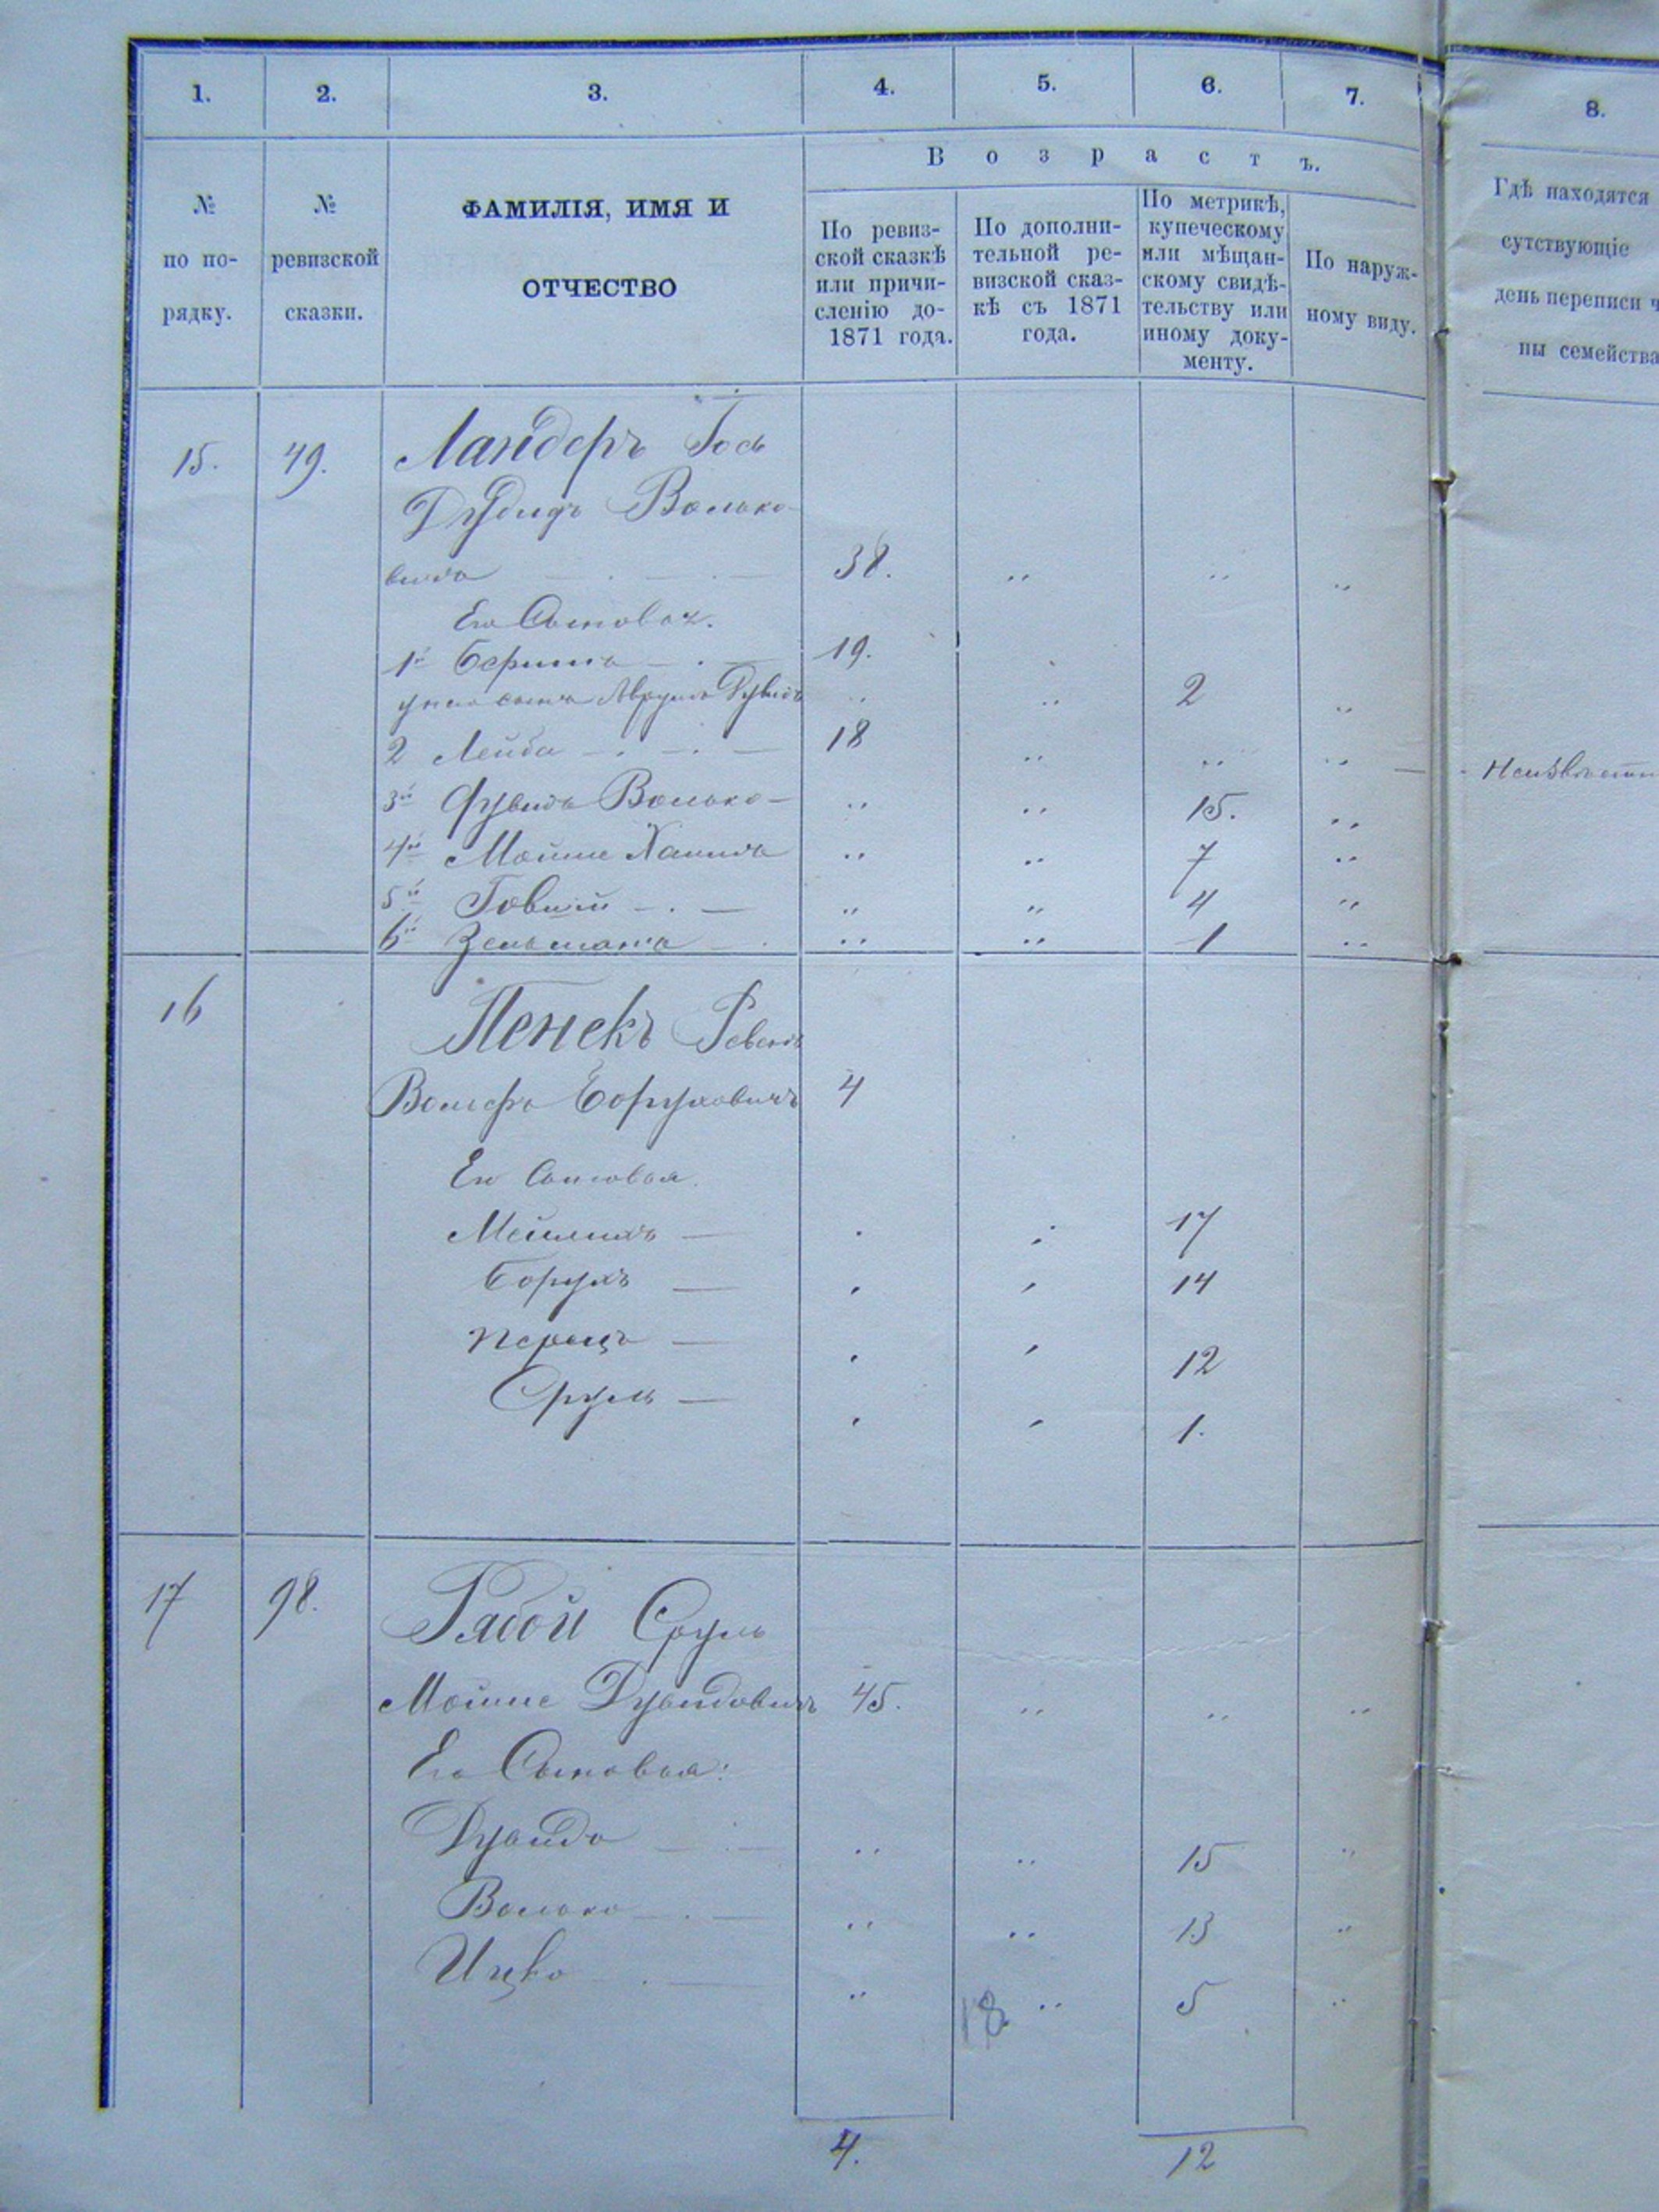 1. 2. 3. 4. 5. 6. 7. 8.
В о з р а с т ъ.
№ по по- рядку.
№ ревизской сказки.
ФАМИЛІЯ, ИМЯ И
ОТЧЕСТВО
По ревиз-
ской сказкѣ
или причи-
сленію до-
1871 года.
По дополни-
тельной ре-
визской сказ-
кѣ съ 1871
года.
По метрикѣ,
купеческому
или мѣщан-
скому свидѣ-
тельству или
иному доку-
менту.
По наруж-
ному виду.
Гдѣ находятся
сутствующіе
день переписи ч
ны семейства
15. 49. Ландеръ Іось
Дувидъ Волько-
вичъ 38. " " "
Его Сыновья.
1й Беришъ 19.
у него сынъ Аврумъ Дувидъ " " 2 "
2 Лейба 18 " " "
3й Дувидъ Волько " " 15. "
4й Мошие Хаимъ " " 7 "
5й Товий " " 4 "
6й Зельманъ " " 1 "
16 Пенекъ
Вольфъ Боруховичъ 4
Его Сыновья.
Мейлихъ 17
Борухъ 14
Перецъ 12
Сруль 1.
17 98. Рябой Сруль
Мошие Дувидовичъ 45. " " "
Его Сыновья:
Дувидъ " " 15 "
Волько " " 13 "
Ицко " " 5 "
18
4. 12